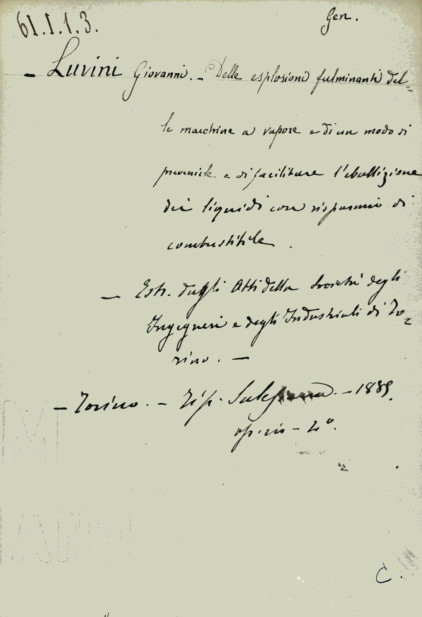 61.I.I.3.
Gen.
- Luvini Giovanni. - Delle esplosioni fulminanti del=
le macchine a vapore e di un modo di
prevenirle e di facilitare l'ebollizione
dei liquidi con risparmio di
combustibile.
- Estr. dagli Atti della Società degli
Ingegneri e degli Industriali di To=
rino. -
- Torino. - Tip. Salesiana - 188
op. in - 4°.
C.